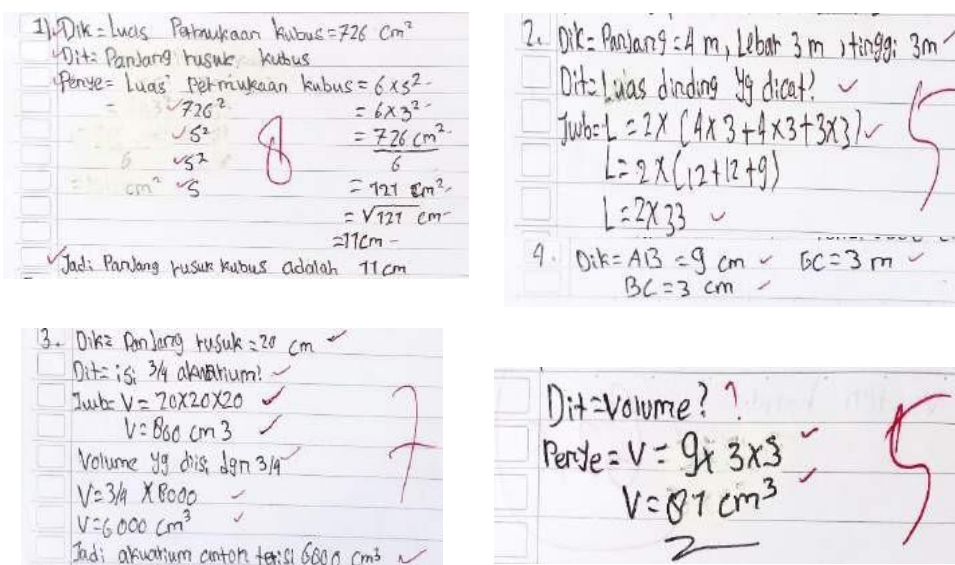 1). Dik = Luas Permukaan kubus = 726 cm²
Dit = Panjang rusuk kubus
Penye = Luas Permukaan kubus = 6 x s²
= 726² = 6 x 3²
s² = 726 cm²
6
s² = 121 cm²
cm² s = √121 cm
= 11 cm
8
Jadi Panjang rusuk kubus adalah 11 cm
2. Dik = Panjang = 4 m, Lebar 3 m, tinggi 3m
Dit = Luas dinding yg dicat?
Jwb = L = 2 x (4x3 + 4x3 + 3x3)
L = 2 x (12 + 12 + 9)
L = 2 x 33
5
4. Dik = AB = 9 cm GC = 3 m
BC = 3 cm
3. Dik = Panjang rusuk = 20 cm
Dit = isi 3/4 akuarium!
Jwb = V = 20x20x20
V = 860 cm 3
Volume yg diisi dgn 3/4
V = 3/4 x 8000
V = 6000 cm³
7
Jadi akuarium anton terisi 6000 cm3
Dit = Volume? ?
Penye = V = 9x 3x3
V = 81 cm³
2
5